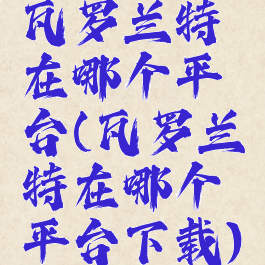 瓦罗兰特
在哪个平
台(瓦罗兰
特在哪个
平台下载)